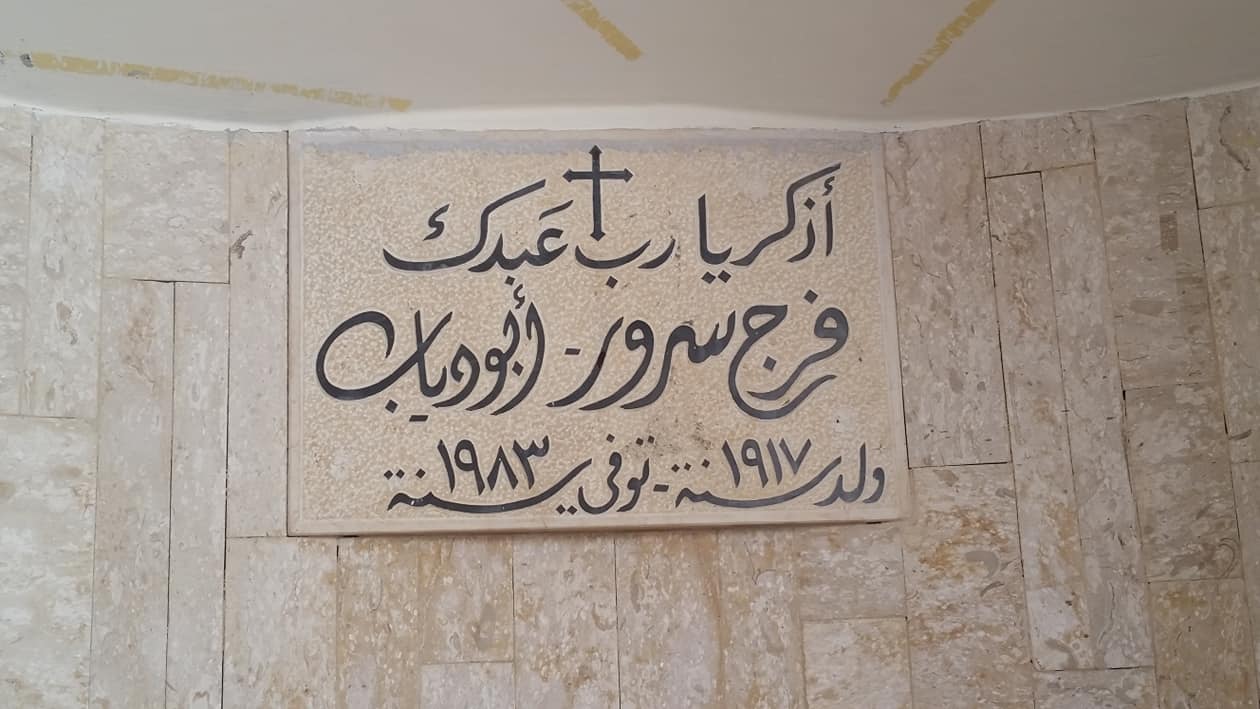 أذكر يا رب عبدك
فرج سرور - أبو دياب
ولد سنة ١٩١٧ - توفي سنة ١٩٨٣